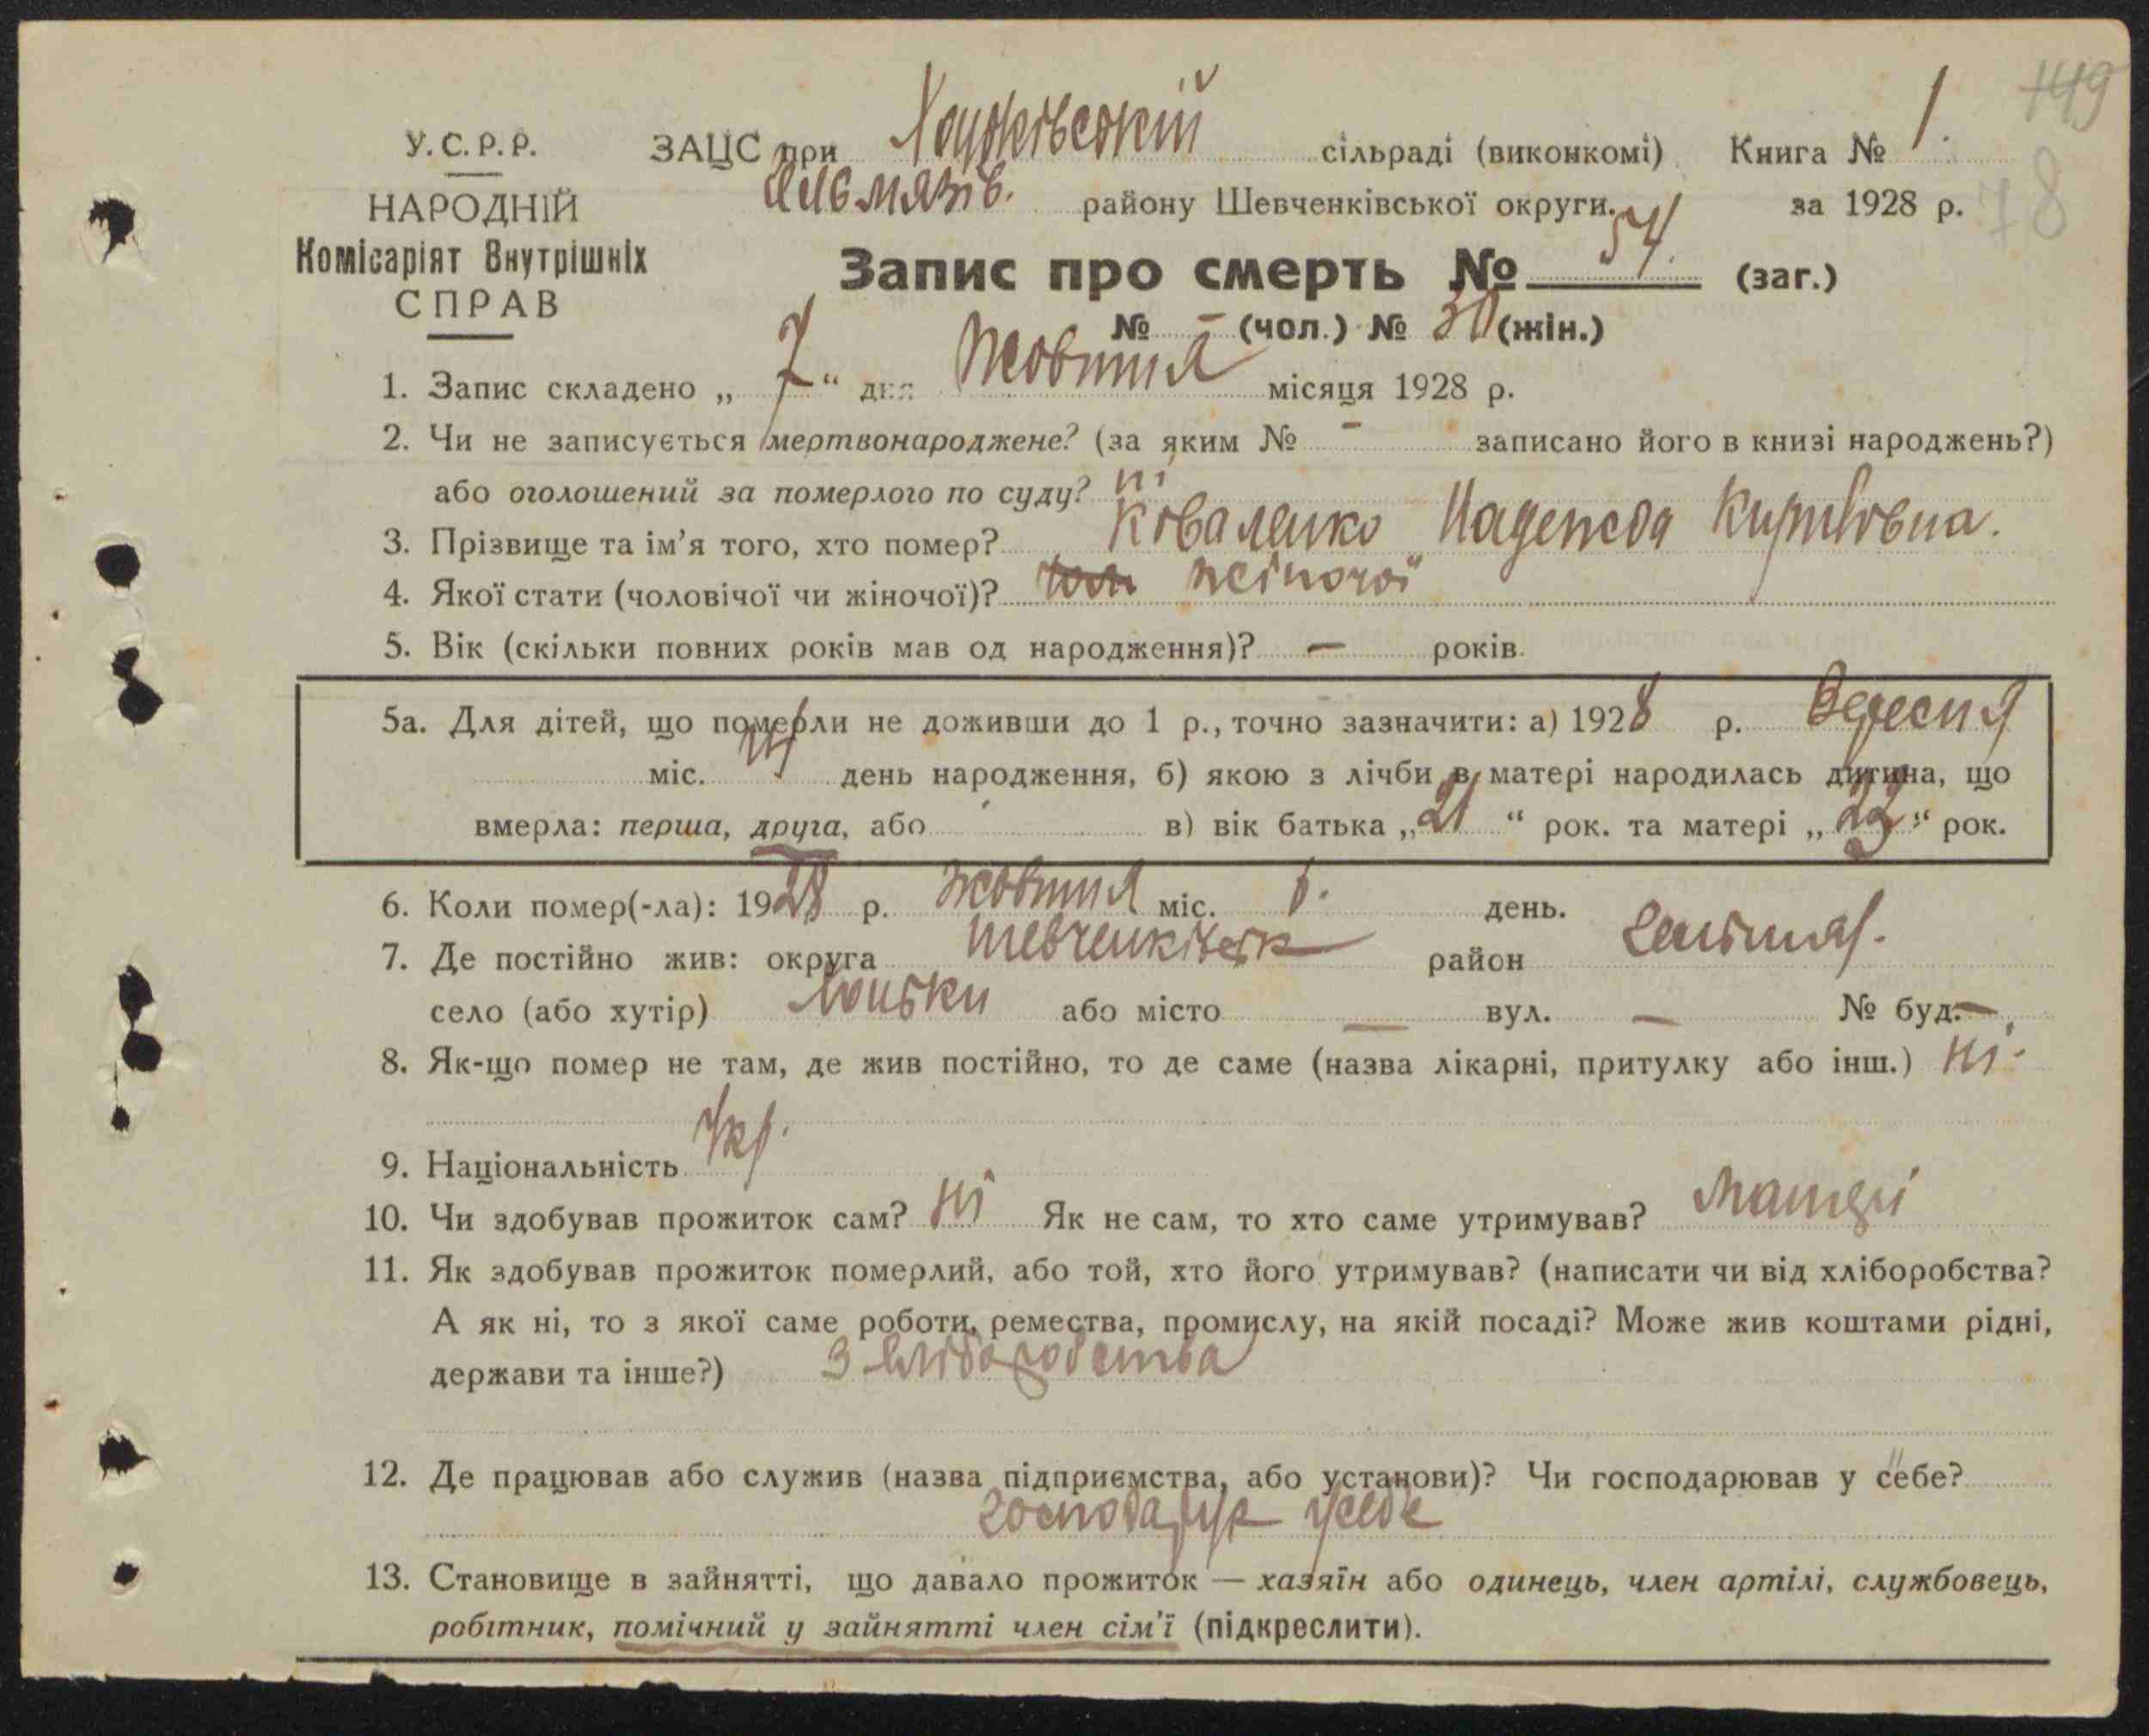 149
78
У.С.Р.Р.
НАРОДНІЙ
Комісаріят Внутрішніх
СПРАВ
ЗАЦС при сільраді (виконкомі) Книга № 1.
району Шевченківської округи. за 1928 р.
Запис про смерть № 54. (заг.)
№ – (чол.) № 30 (жін.)
1. Запис складено „ 7 “ дня Жовтня місяця 1928 р.
2. Чи не записується мертвонароджене? (за яким № – записано його в книзі народжень?)
або оголошений за померлого по суду? ні
3. Прізвище та ім’я того, хто помер? Коваленко Надежда
4. Якої стати (чоловічої чи жіночої)? жіночої
5. Вік (скільки повних років мав од народження)? — років.
5а. Для дітей, що померли не доживши до 1 р., точно зазначити: а) 1928 р. Вересня
міс. день народження, б) якою з лічби в матері народилась дитина, що
вмерла: перша, друга, або в) вік батька „ 21 “ рок. та матері „ 23 “ рок.
6. Коли помер(-ла): 1928 р. Жовтня міс. день.
7. Де постійно жив: округа Шевченківськ район
село (або хутір) або місто — вул. — № буд. —
8. Як-що помер не там, де жив постійно, то де саме (назва лікарні, притулку або інш.) Ні.
9. Національність Укр.
10. Чи здобував прожиток сам? Ні Як не сам, то хто саме утримував? Матері
11. Як здобував прожиток померлий, або той, хто його утримував? (написати чи від хліборобства?
А як ні, то з якої саме роботи, ремества, промислу, на якій посаді? Може жив коштами рідні,
держави та інше?) З хліборобства
12. Де працював або служив (назва підприємства, або установи)? Чи господарював у себе?
господарює у себе
13. Становище в зайнятті, що давало прожиток — хазяїн або одинець, член артілі, службовець,
робітник, помічний у зайнятті член сім’ї (підкреслити).